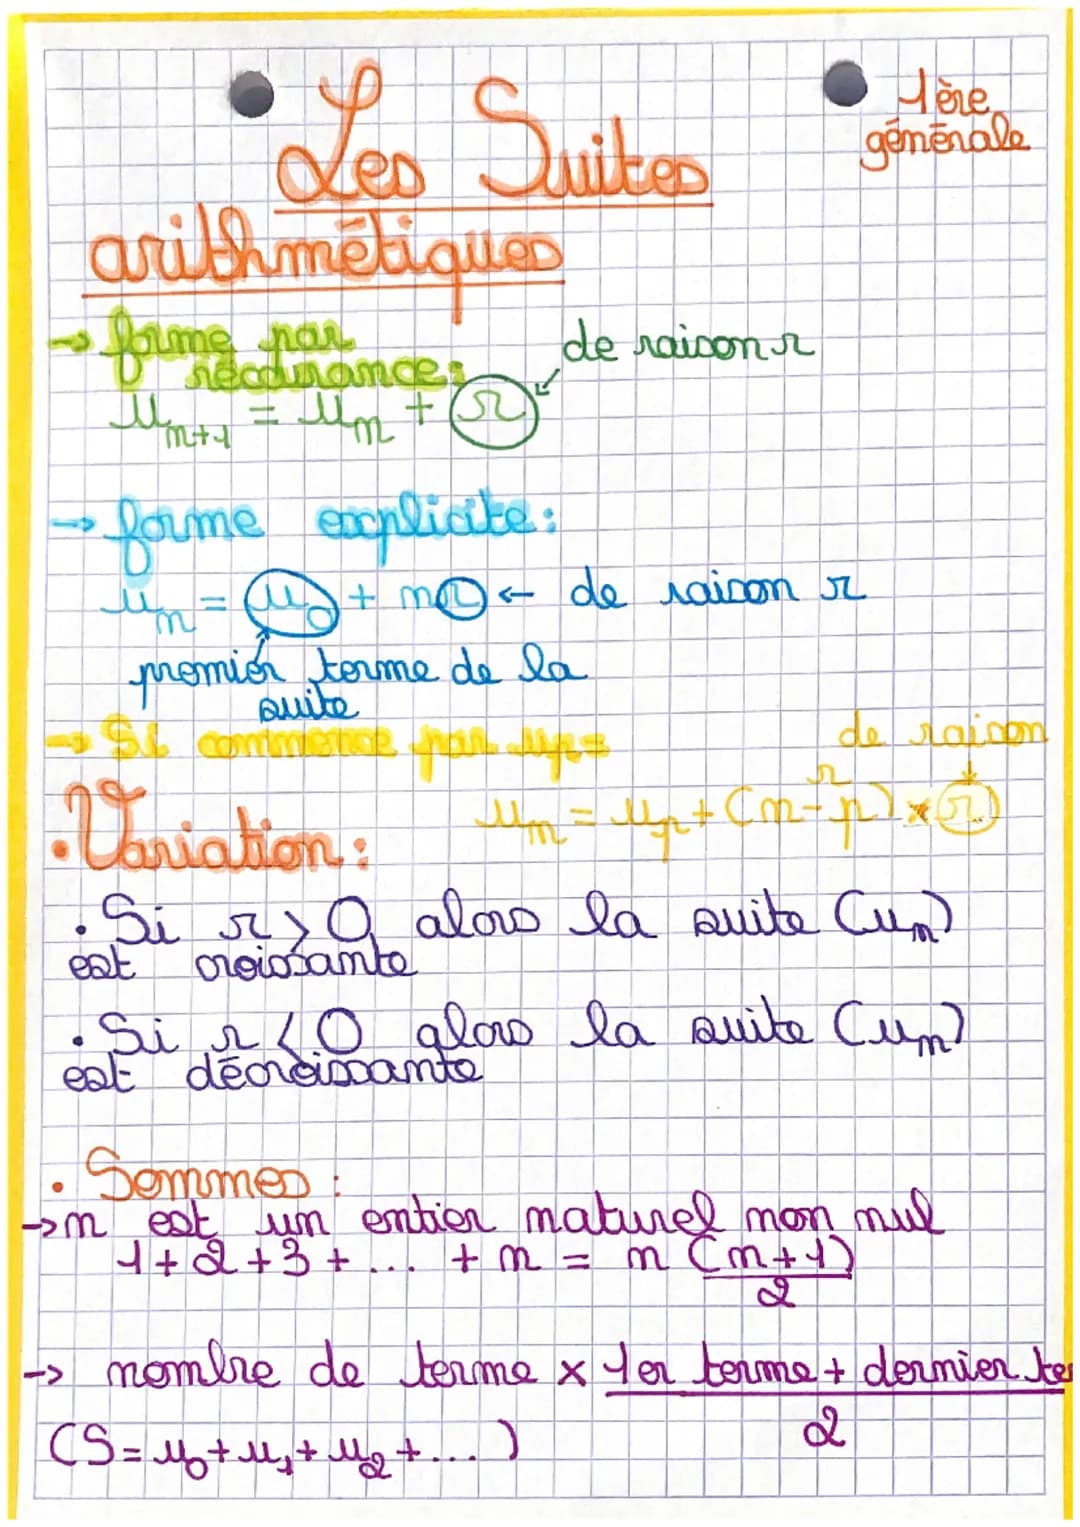 1ère
générale
Les Suites
arithmétiques
→ forme par
récurrence:
de raison r
uₙ₊₁ = uₙ + r
→ forme explicite:
uₙ = u₀ + nr ← de raison r
premier terme de la
suite
→ Si commence par up=
de raison
r
uₙ = uₚ + (n-p) × r
• Variation:
• Si r > 0 alors la suite (uₙ)
est croissante
• Si r < 0 alors la suite (uₙ)
est décroissante
• Sommes :
→ n est un entier naturel non nul
1+2+3+... + n = n (n+1)
2
→ nombre de terme × 1er terme + dernier te
2
(S= u₀+u₁+u₂+...)